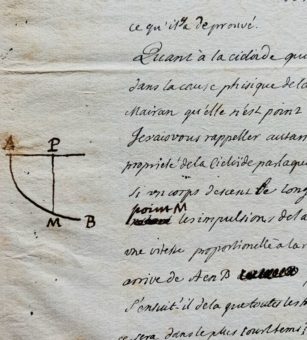 ce qu'il y a de prouvé.
Quant à la cicloide que
dans la cause phisique de la
A P
Mairan qu'elle n'est point
Je vais vous rappeller autan
propriété de la Cicloide par laqu
si un corps descent le long
point M
M B
les impulsions de la
une vitesse proportionelle à la
arrive de A en B
S'ensuit-il de la que toutes les
ce sera dans le plus court tems